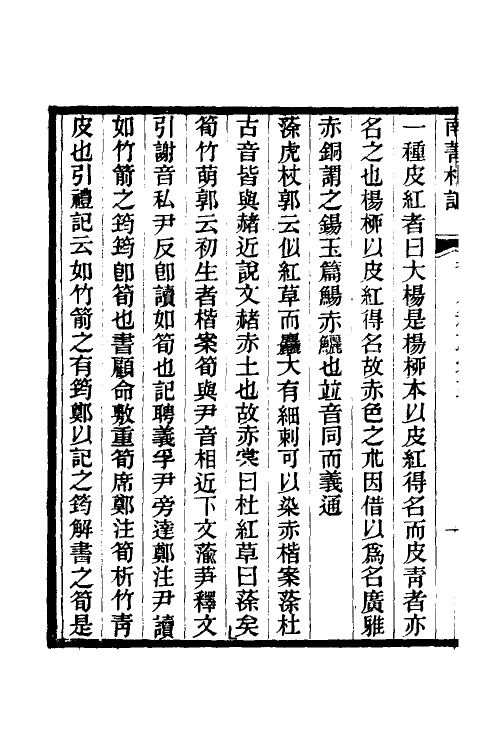 南菁札記
一種皮紅者曰大楊是楊柳本以皮紅得名而皮靑者亦
名之也楊柳以皮紅得名故赤色之朮因借以爲名廣雅
赤銅謂之鍚玉篇鰑赤鱺也竝音同而義通
蒤虎杖郭云似紅草而麤大有細刺可以染赤楷案蒤杜
古音皆與赭近說文赭赤土也故赤棠曰杜紅草曰蒤矣
筍竹萌郭云初生者楷案筍與尹音相近下文蕍芛釋文
引謝音私尹反卽讀如筍也記聘義孚尹旁達鄭注尹讀
如竹箭之筠筠卽筍也書顧命敷重筍席鄭注筍析竹靑
皮也引禮記云如竹箭之有筠鄭以記之筠解書之筍是